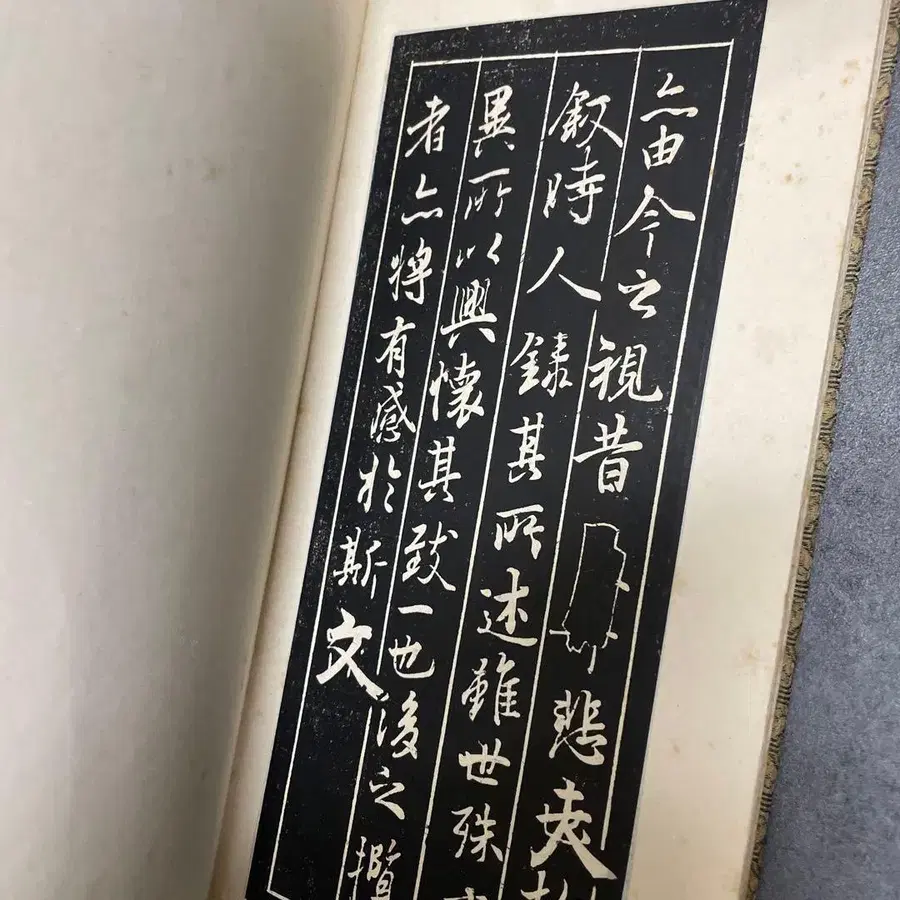 亦由今之視昔悲夫
叙時人錄其所述雖世殊
異所以興懷其致一也後之攬
者亦將有感於斯文